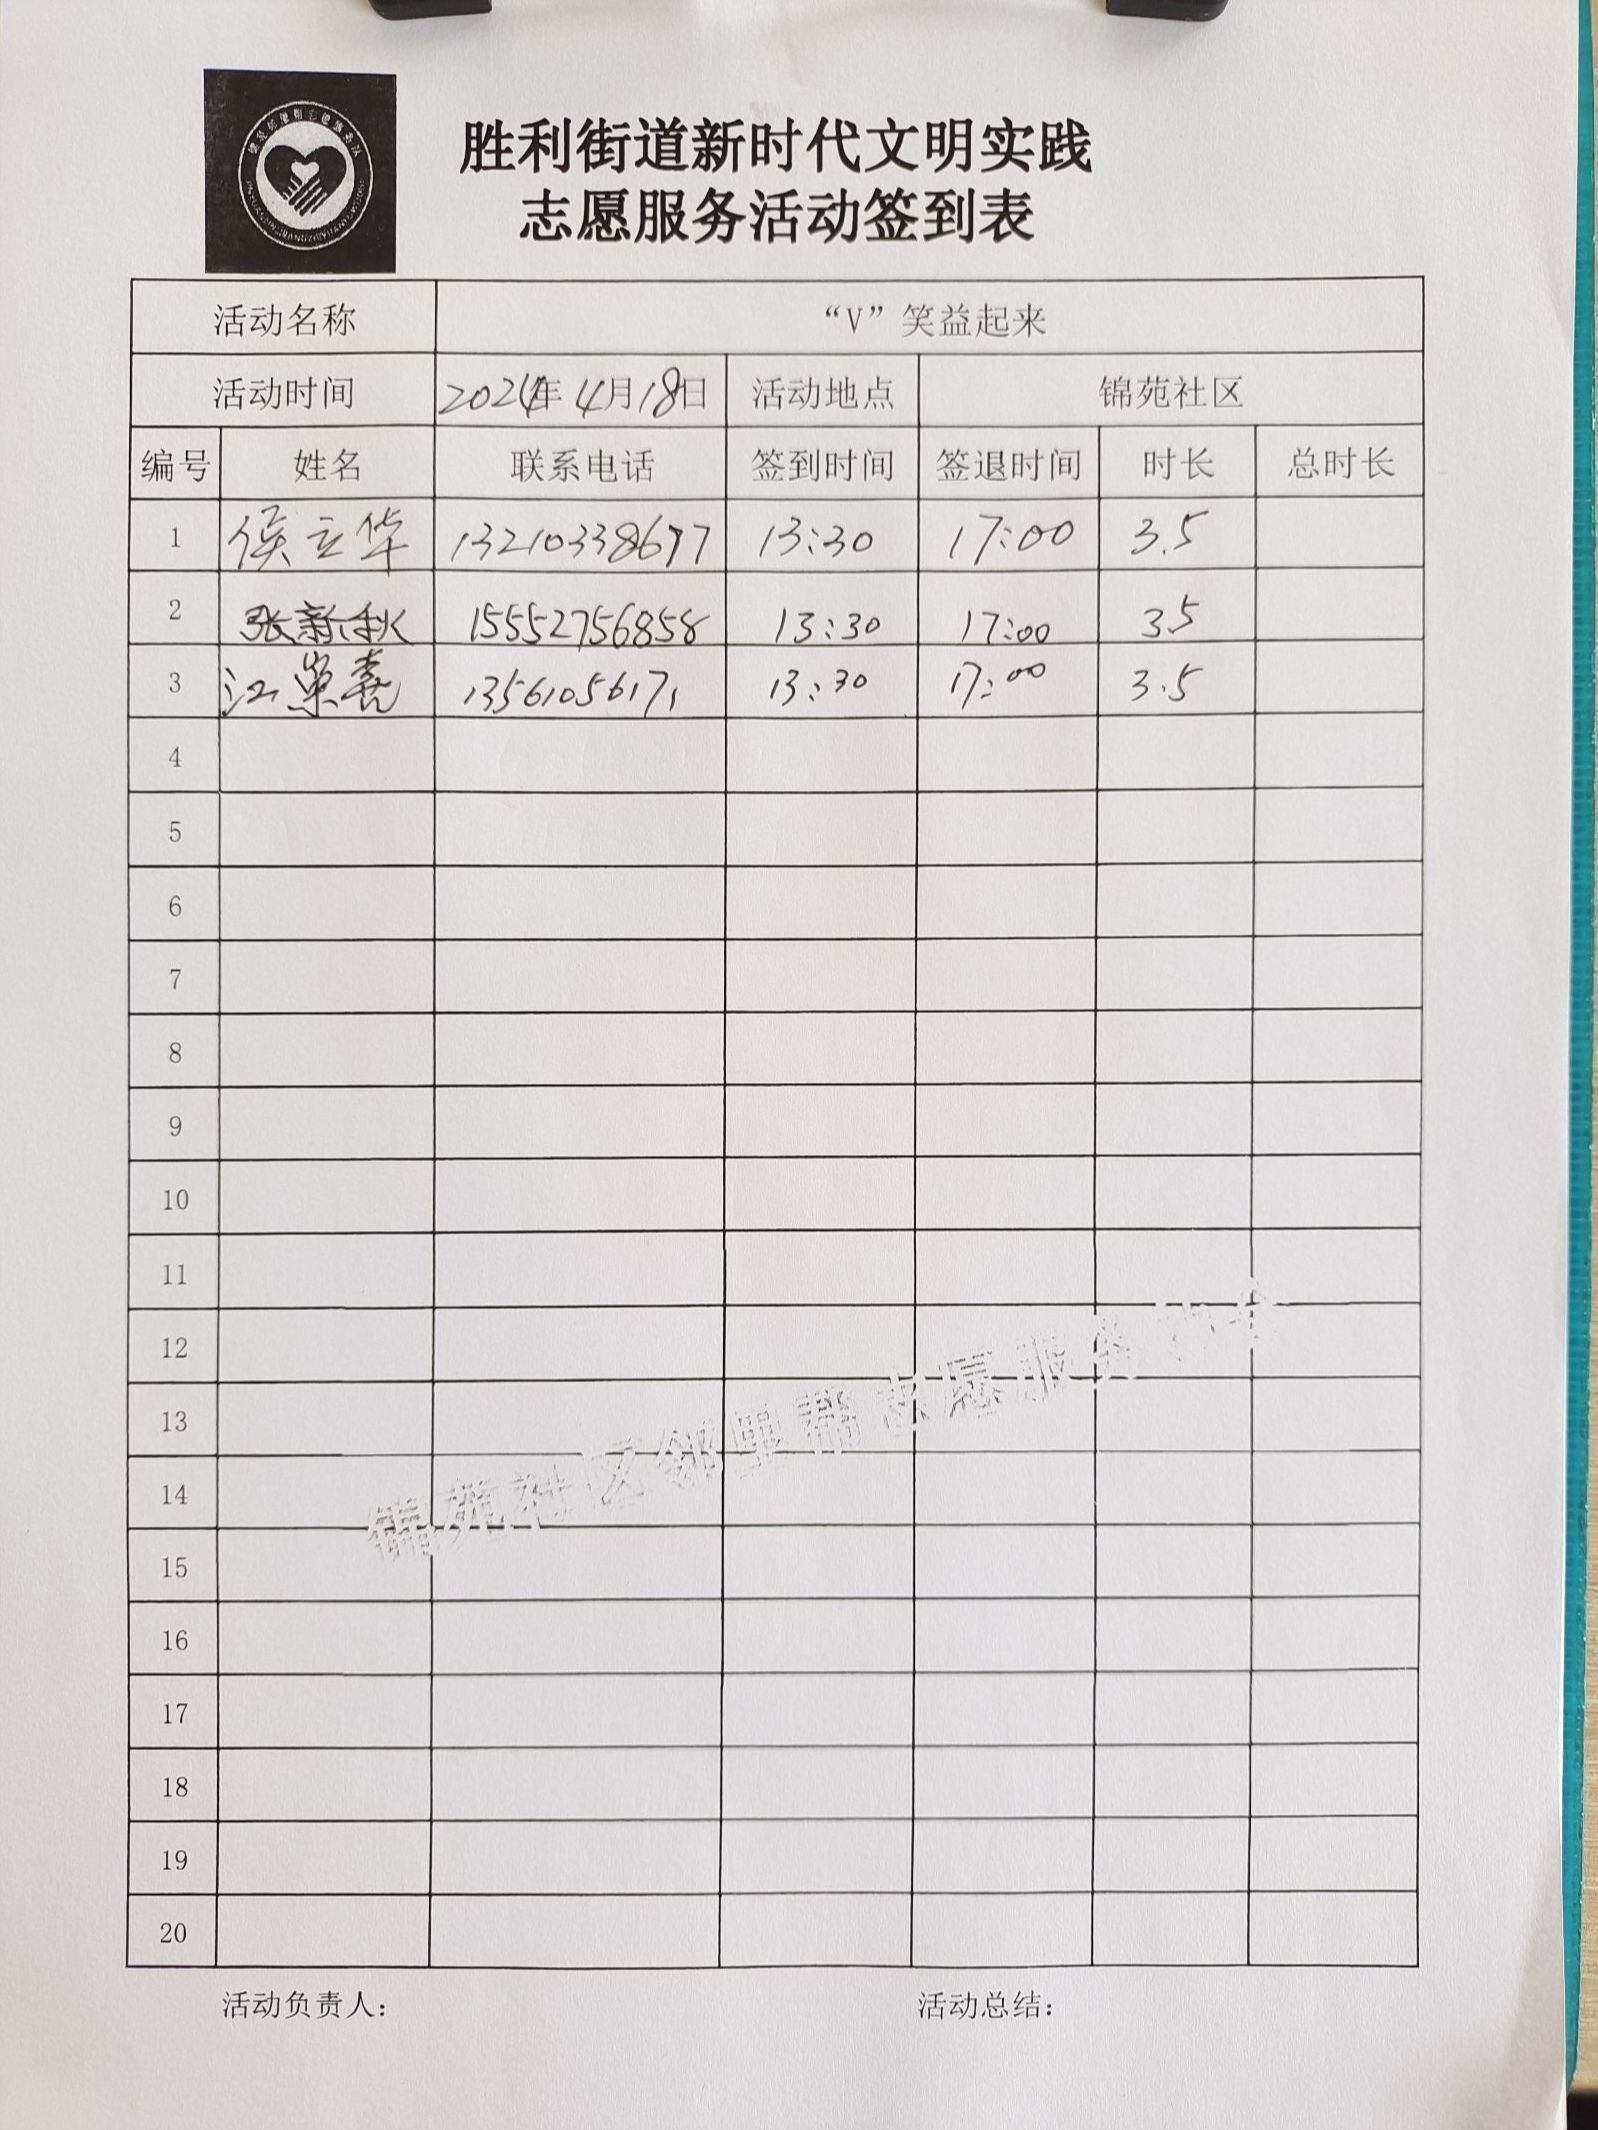 胜利街道新时代文明实践
志愿服务活动签到表
活动名称 “V”笑益起来
活动时间 2024年4月18日 活动地点 锦苑社区
编号 姓名 联系电话 签到时间 签退时间 时长 总时长
1 侯立华 13210338697 13:30 17:00 3.5
2 张新秋 15552756858 13:30 17:00 3.5
3 江荣喜 13561056171 13:30 17:00 3.5
4
5
6
7
8
9
10
11
12
13
14
15
16
17
18
19
20
锦苑社区邻里帮志愿服务
活动负责人: 活动总结: